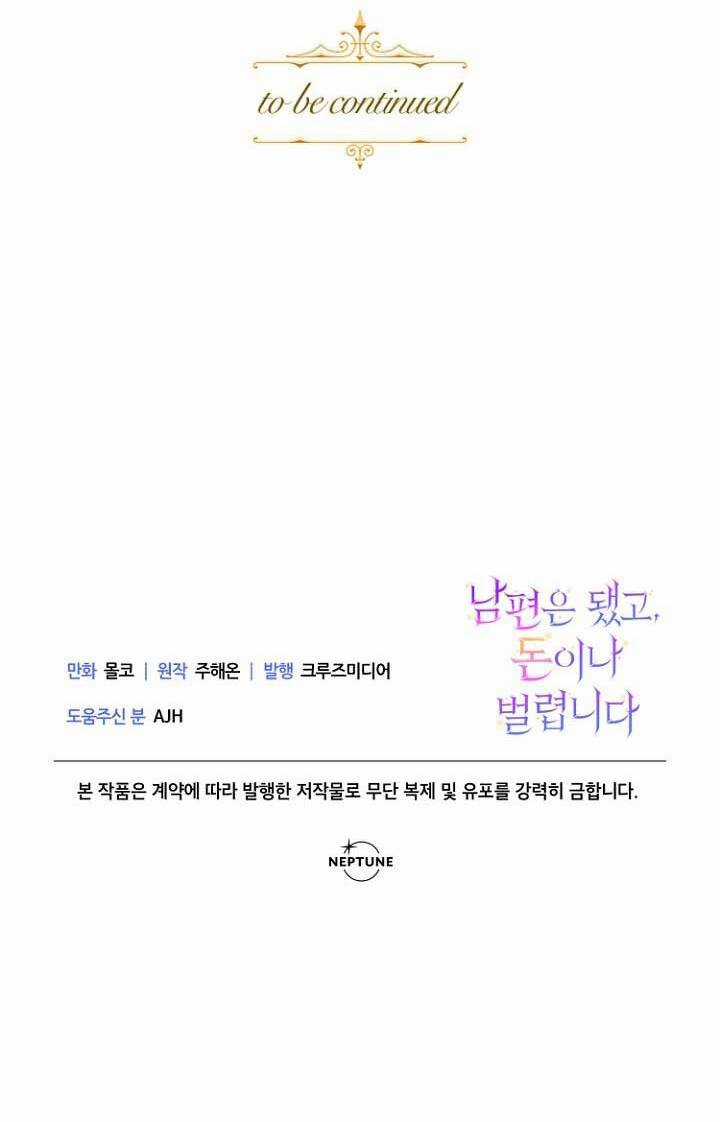 to be continued
남편은 됐고,
돈이나
벌렵니다
만화 몰코 | 원작 주해온 | 발행 크루즈미디어
도움주신 분 AJH
본 작품은 계약에 따라 발행한 저작물로 무단 복제 및 유포를 강력히 금합니다.
NEPTUNE